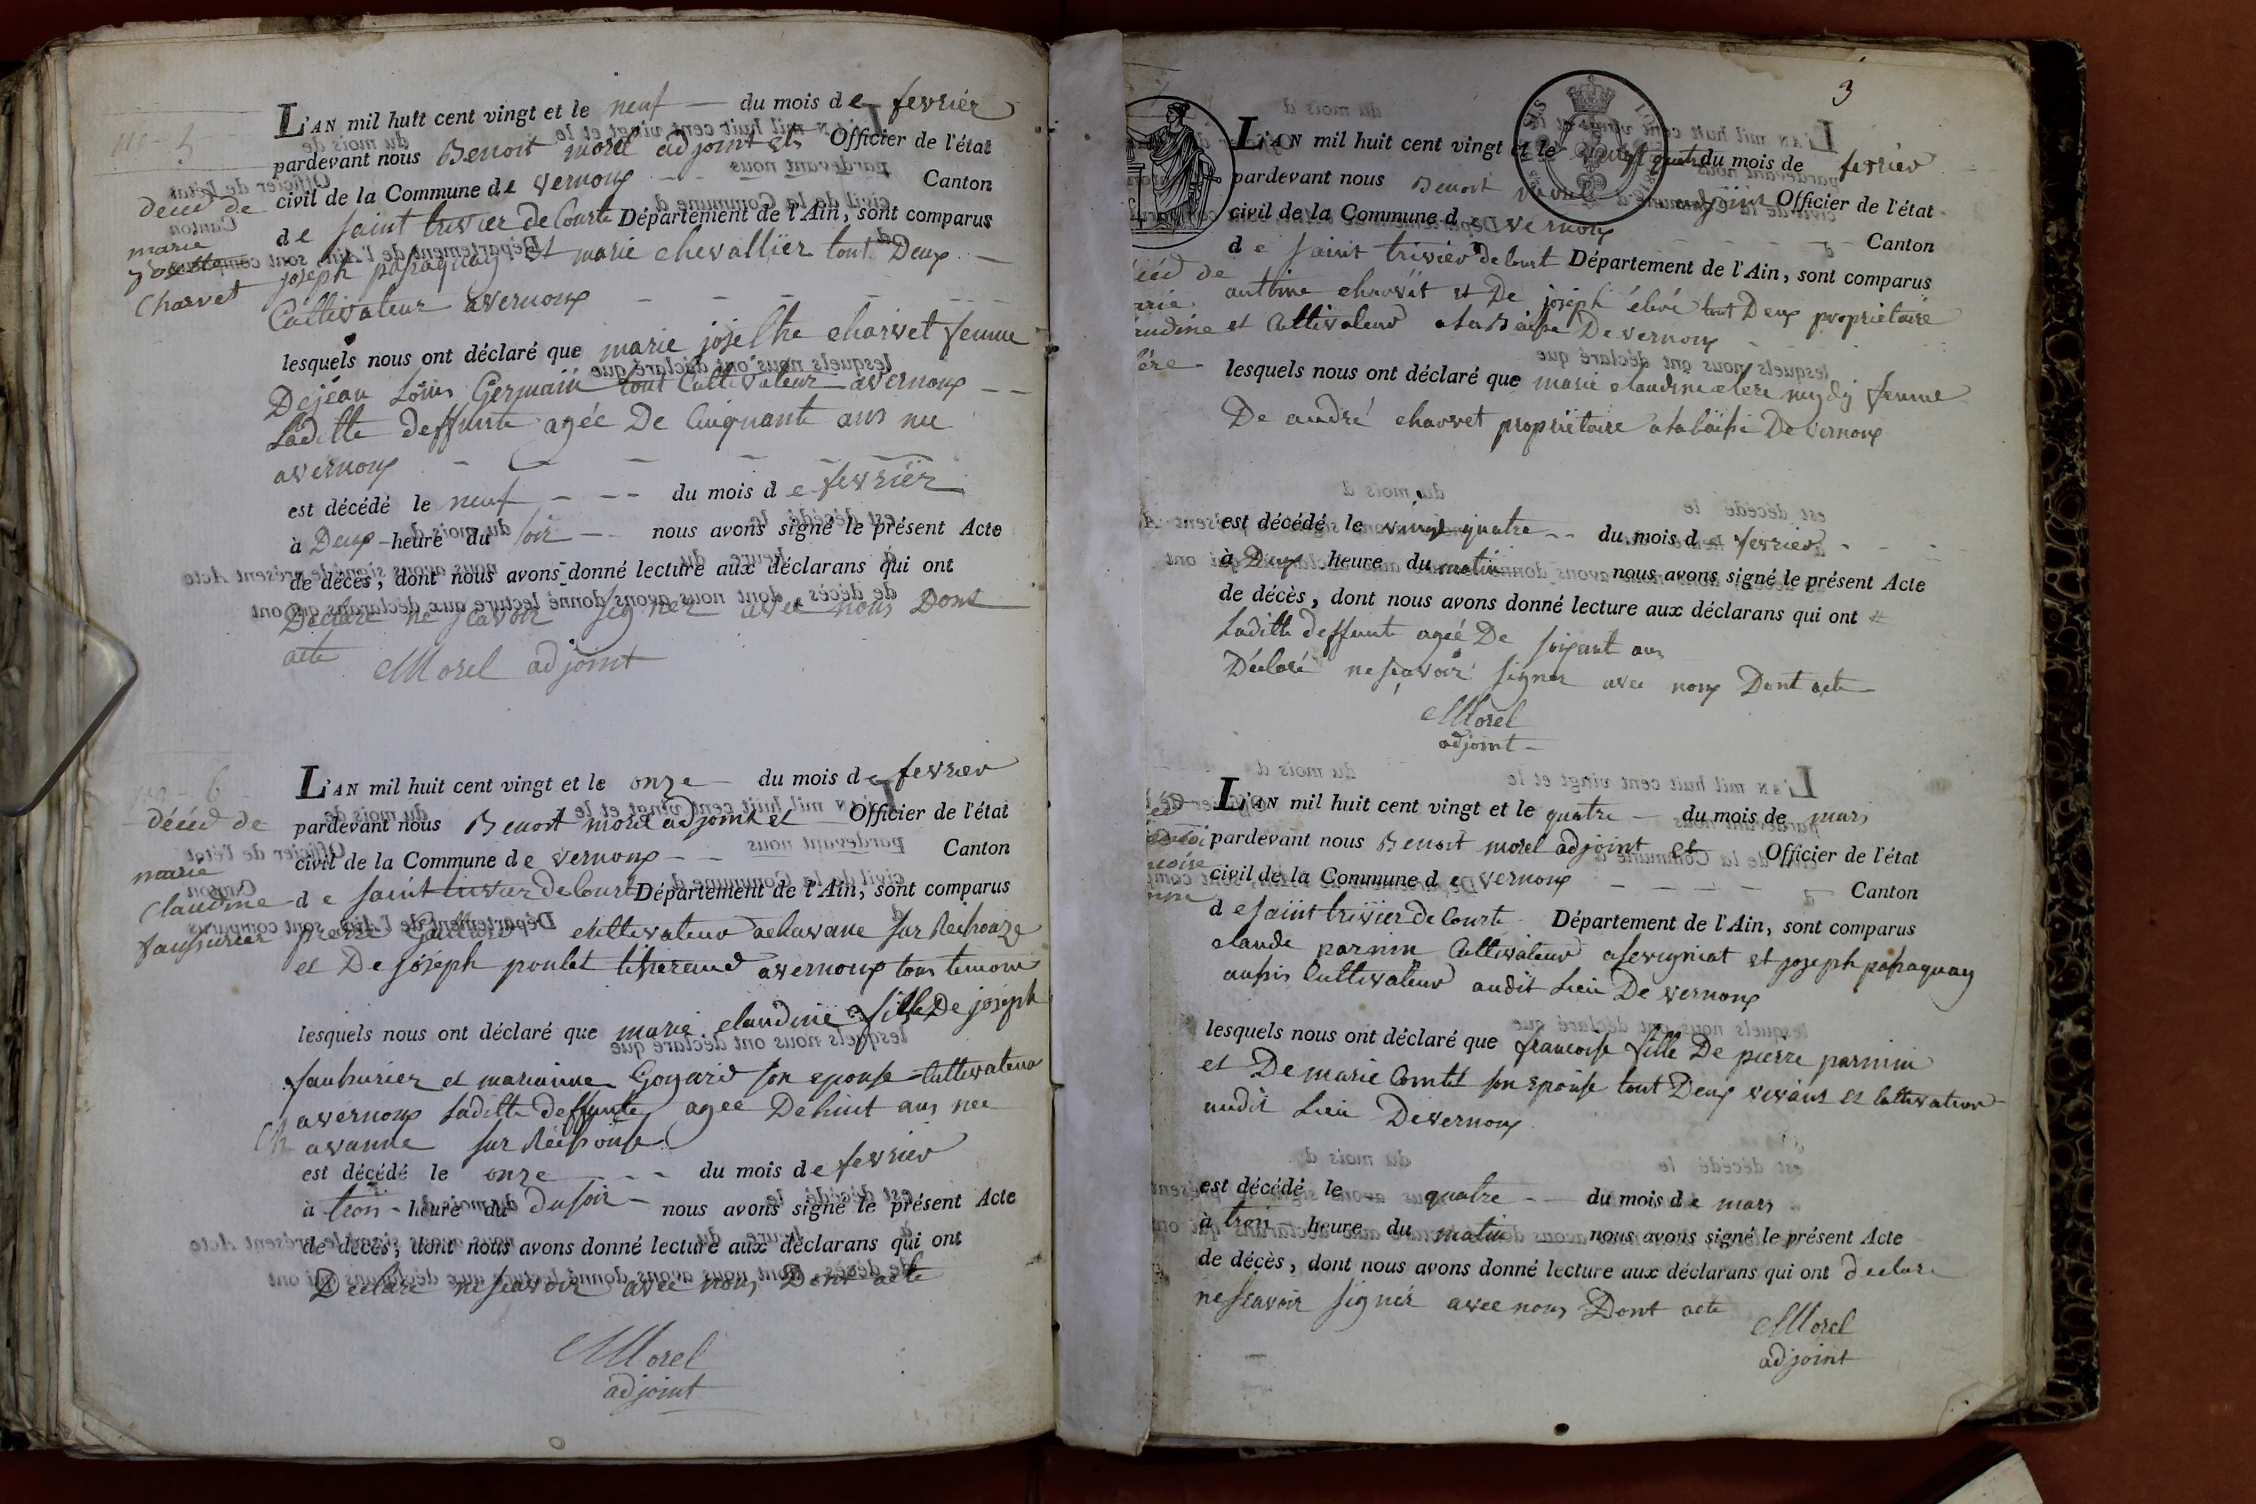 no - 5
décèd de
marie
Josette
Charvet
L'AN mil huit cent vingt et le neuf — du mois de fevriér
pardevant nous Benoit morel adjoint et Officier de l'état
civil de la Commune de vernoux Canton
de saint trivier de Courte Département de l'Ain, sont comparus
joseph passaquay et marie chevallïer tout Deux
Cultivateur avernoux
lesquels nous ont déclaré que marie joselhe charvet femme
Dejéan Loüis Germain tout Cultivateur avernoux
Laditte deffunte agée De Cinquante ans né
avernoux
est décédé le neuf du mois de fevriër
à Deux heure du soir nous avons signé le présent Acte
de décès, dont nous avons donné lecture aux déclarans qui ont
Déclaré ne scavoir signer avec nous Dont
acte Morel adjoint
no - 6
décèd de
marie
Claudine
L'AN mil huit cent vingt et le onze du mois de fevrier
pardevant nous Benoit morel adjoint et Officier de l'état
civil de la Commune de vernoux Canton
de saint trivier de Courte Département de l'Ain, sont comparus
pierre cultivateur achavane sur
et De joseph poulet tisserand avernoux tous temoins
lesquels nous ont déclaré que marie claudine fille De joseph
et marianne Goyard son epouse Cultivateur
avernoux Laditte deffunte agee De huit ans nee
Ch avanne sur Reissouse
est décédé le onze du mois de fevrier
à trois heure du Du soir nous avons signé le présent Acte
de décès, dont nous avons donné lecture aux déclarans qui ont
Declaré ne scavoir avec nous Dont acte
Morel
adjoint
3
L'AN mil huit cent vingt et le vingt quatre du mois de fevrier
pardevant nous Benoit morel adjoint Officier de l'état
civil de la Commune de vernoux Canton
de saint trivier de Court Département de l'Ain, sont comparus
antoine charvet et De joseph tout Deux proprietaire
et Cultivateur De vernoux
lesquels nous ont déclaré que marie claudine femme
De andré charvet propriétaire De vernoux
est décédé le vingt quatre du mois de fevrier
à Deux heure du matin nous avons signé le présent Acte
de décès, dont nous avons donné lecture aux déclarans qui ont #
Laditte deffunte ageé De soixant ans
Déclaré ne scavoir signer avec nous Dont acte
Morel
adjoint
L'AN mil huit cent vingt et le quatre du mois de mars
pardevant nous Benoit morel adjoint et Officier de l'état
civil de la Commune de vernoux Canton
de saint trivier de Courte Département de l'Ain, sont comparus
claude parnin Cultivateur asevigniat et joseph passaquay
aussis Cultivateur audit Lieu De vernoux
lesquels nous ont déclaré que francoise fille De pierre parnin
et De marie Comtet son epouse tout Deux vivant et Cultivateur
audit Lieu De vernoux
est décédé le quatre du mois de mars
à trois heure du matin nous avons signé le présent Acte
de décès, dont nous avons donné lecture aux déclarans qui ont declaré
ne scavoir signér avec nous Dont acte
Morel
adjoint